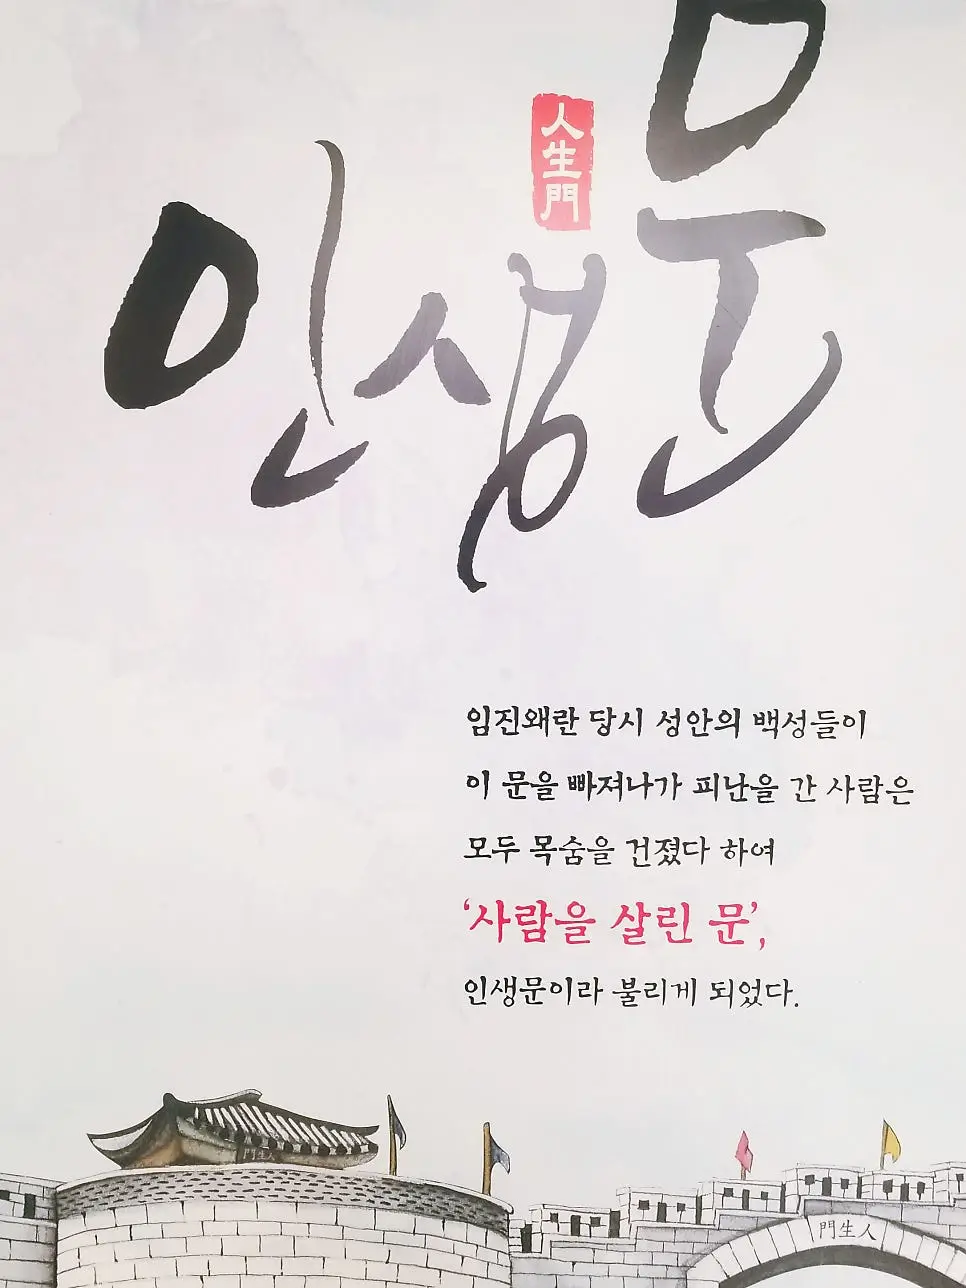 인생문
人生門
임진왜란 당시 성안의 백성들이
이 문을 빠져나가 피난을 간 사람은
모두 목숨을 건졌다 하여
‘사람을 살린 문’,
인생문이라 불리게 되었다.
門生人
門生人